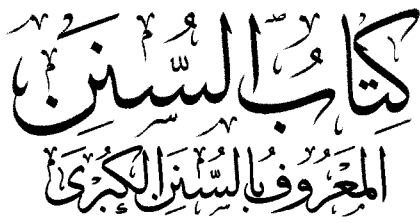 كِتَابُ السُّنَنِ
المَعْرُوفُ بِالسُّنَنِ الكُبْرَى